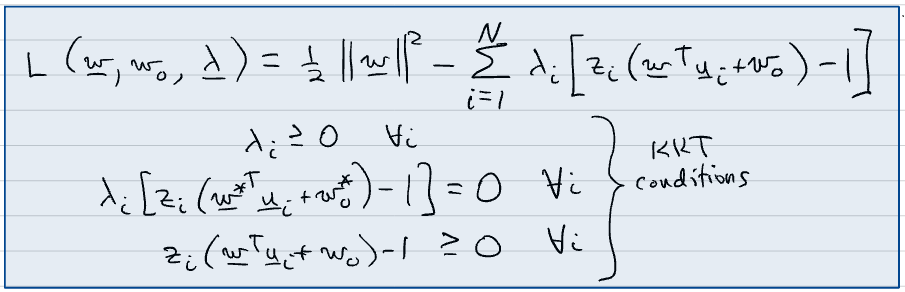 L (w̲, w₀, λ̲) = ½ ‖w̲‖² − ∑_{i=1}^{N} λᵢ [zᵢ (w̲ᵀu̲ᵢ + w₀) − 1]
λᵢ ≥ 0 ∀i
λᵢ [zᵢ (w̲*ᵀu̲ᵢ + w₀*) − 1] = 0 ∀i
zᵢ (w̲ᵀu̲ᵢ + w₀) − 1 ≥ 0 ∀i
KKT
conditions